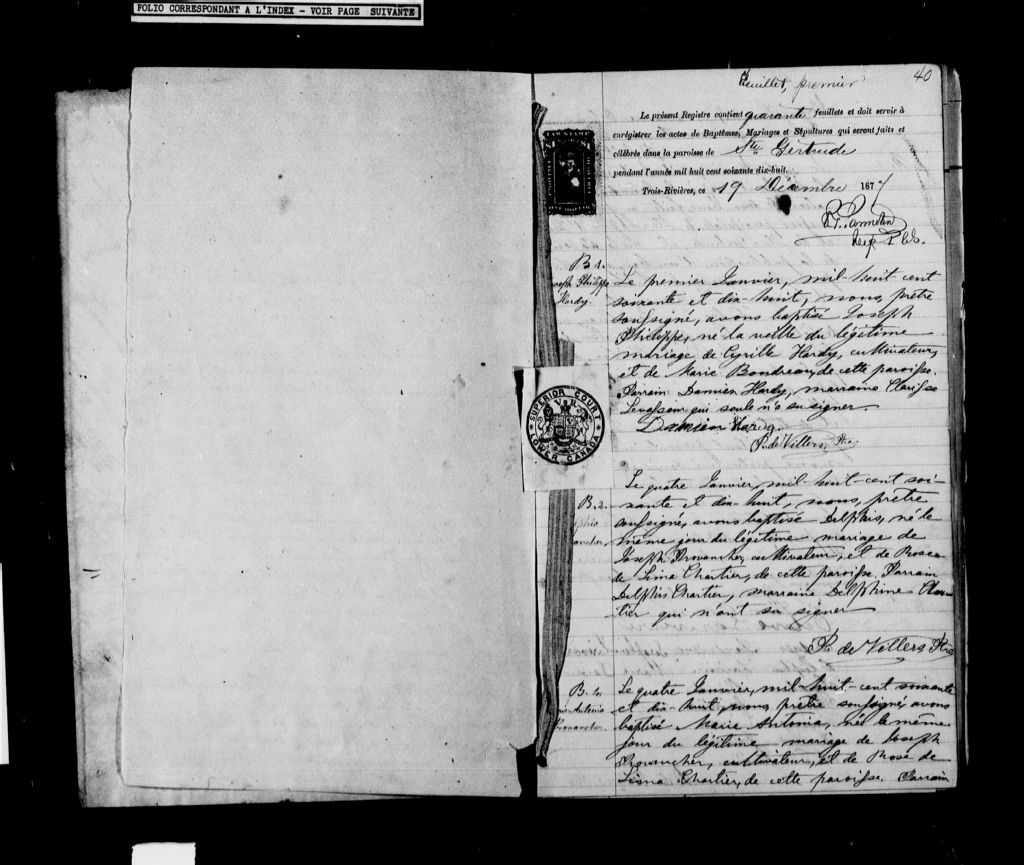 FOLIO CORRESPONDANT A L'INDEX - VOIR PAGE SUIVANTE
40
feuillet, premier
Le présent Registre contient quarante feuillets et doit servir à
enrégistrer les actes de Baptêmes, Mariages et Sépultures qui seront faits et
célébrés dans la paroisse de Ste Gertrude
pendant l'année mil huit cent soixante dix-huit.
Trois-Rivières, ce 19 Décembre 1877
B 1.
Joseph Philippe
Hardy.
Le premier Janvier, mil-huit-cent
soixante et dix-huit, nous, prêtre
soussigné, avons baptisé Joseph
Philippe, né la veille du légitime
mariage de Cyrille Hardy, cultivateur,
et de Marie Boudreau, de cette paroisse.
Parrain Damien Hardy, marraine Clarisse
Levasseur qui seule n'a su signer.
Damien Hardy.
P. de Villers, Ptre
SUPERIOR COURT
V R
LOWER CANADA
B. 2.
Le quatre Janvier, mil-huit-cent soi-
xante et dix-huit, nous, prêtre
soussigné, avons baptisé Delphis, né le
même jour du légitime mariage de
Joseph Provancher, cultivateur, et de Rose
de Lima Chartier, de cette paroisse. Parrain
Delphis Chartier, marraine Delphine Char-
tier qui n'ont su signer
P. de Villers Ptre
B.
Marie Antonia
Provancher.
Le quatre Janvier, mil-huit-cent soixante
et dix-huit, nous, prêtre soussigné, avons
baptisé Marie Antonia, née le même
jour du légitime mariage de Joseph
Provancher, cultivateur, et de Rose de
Lima Chartier, de cette paroisse. Parrain